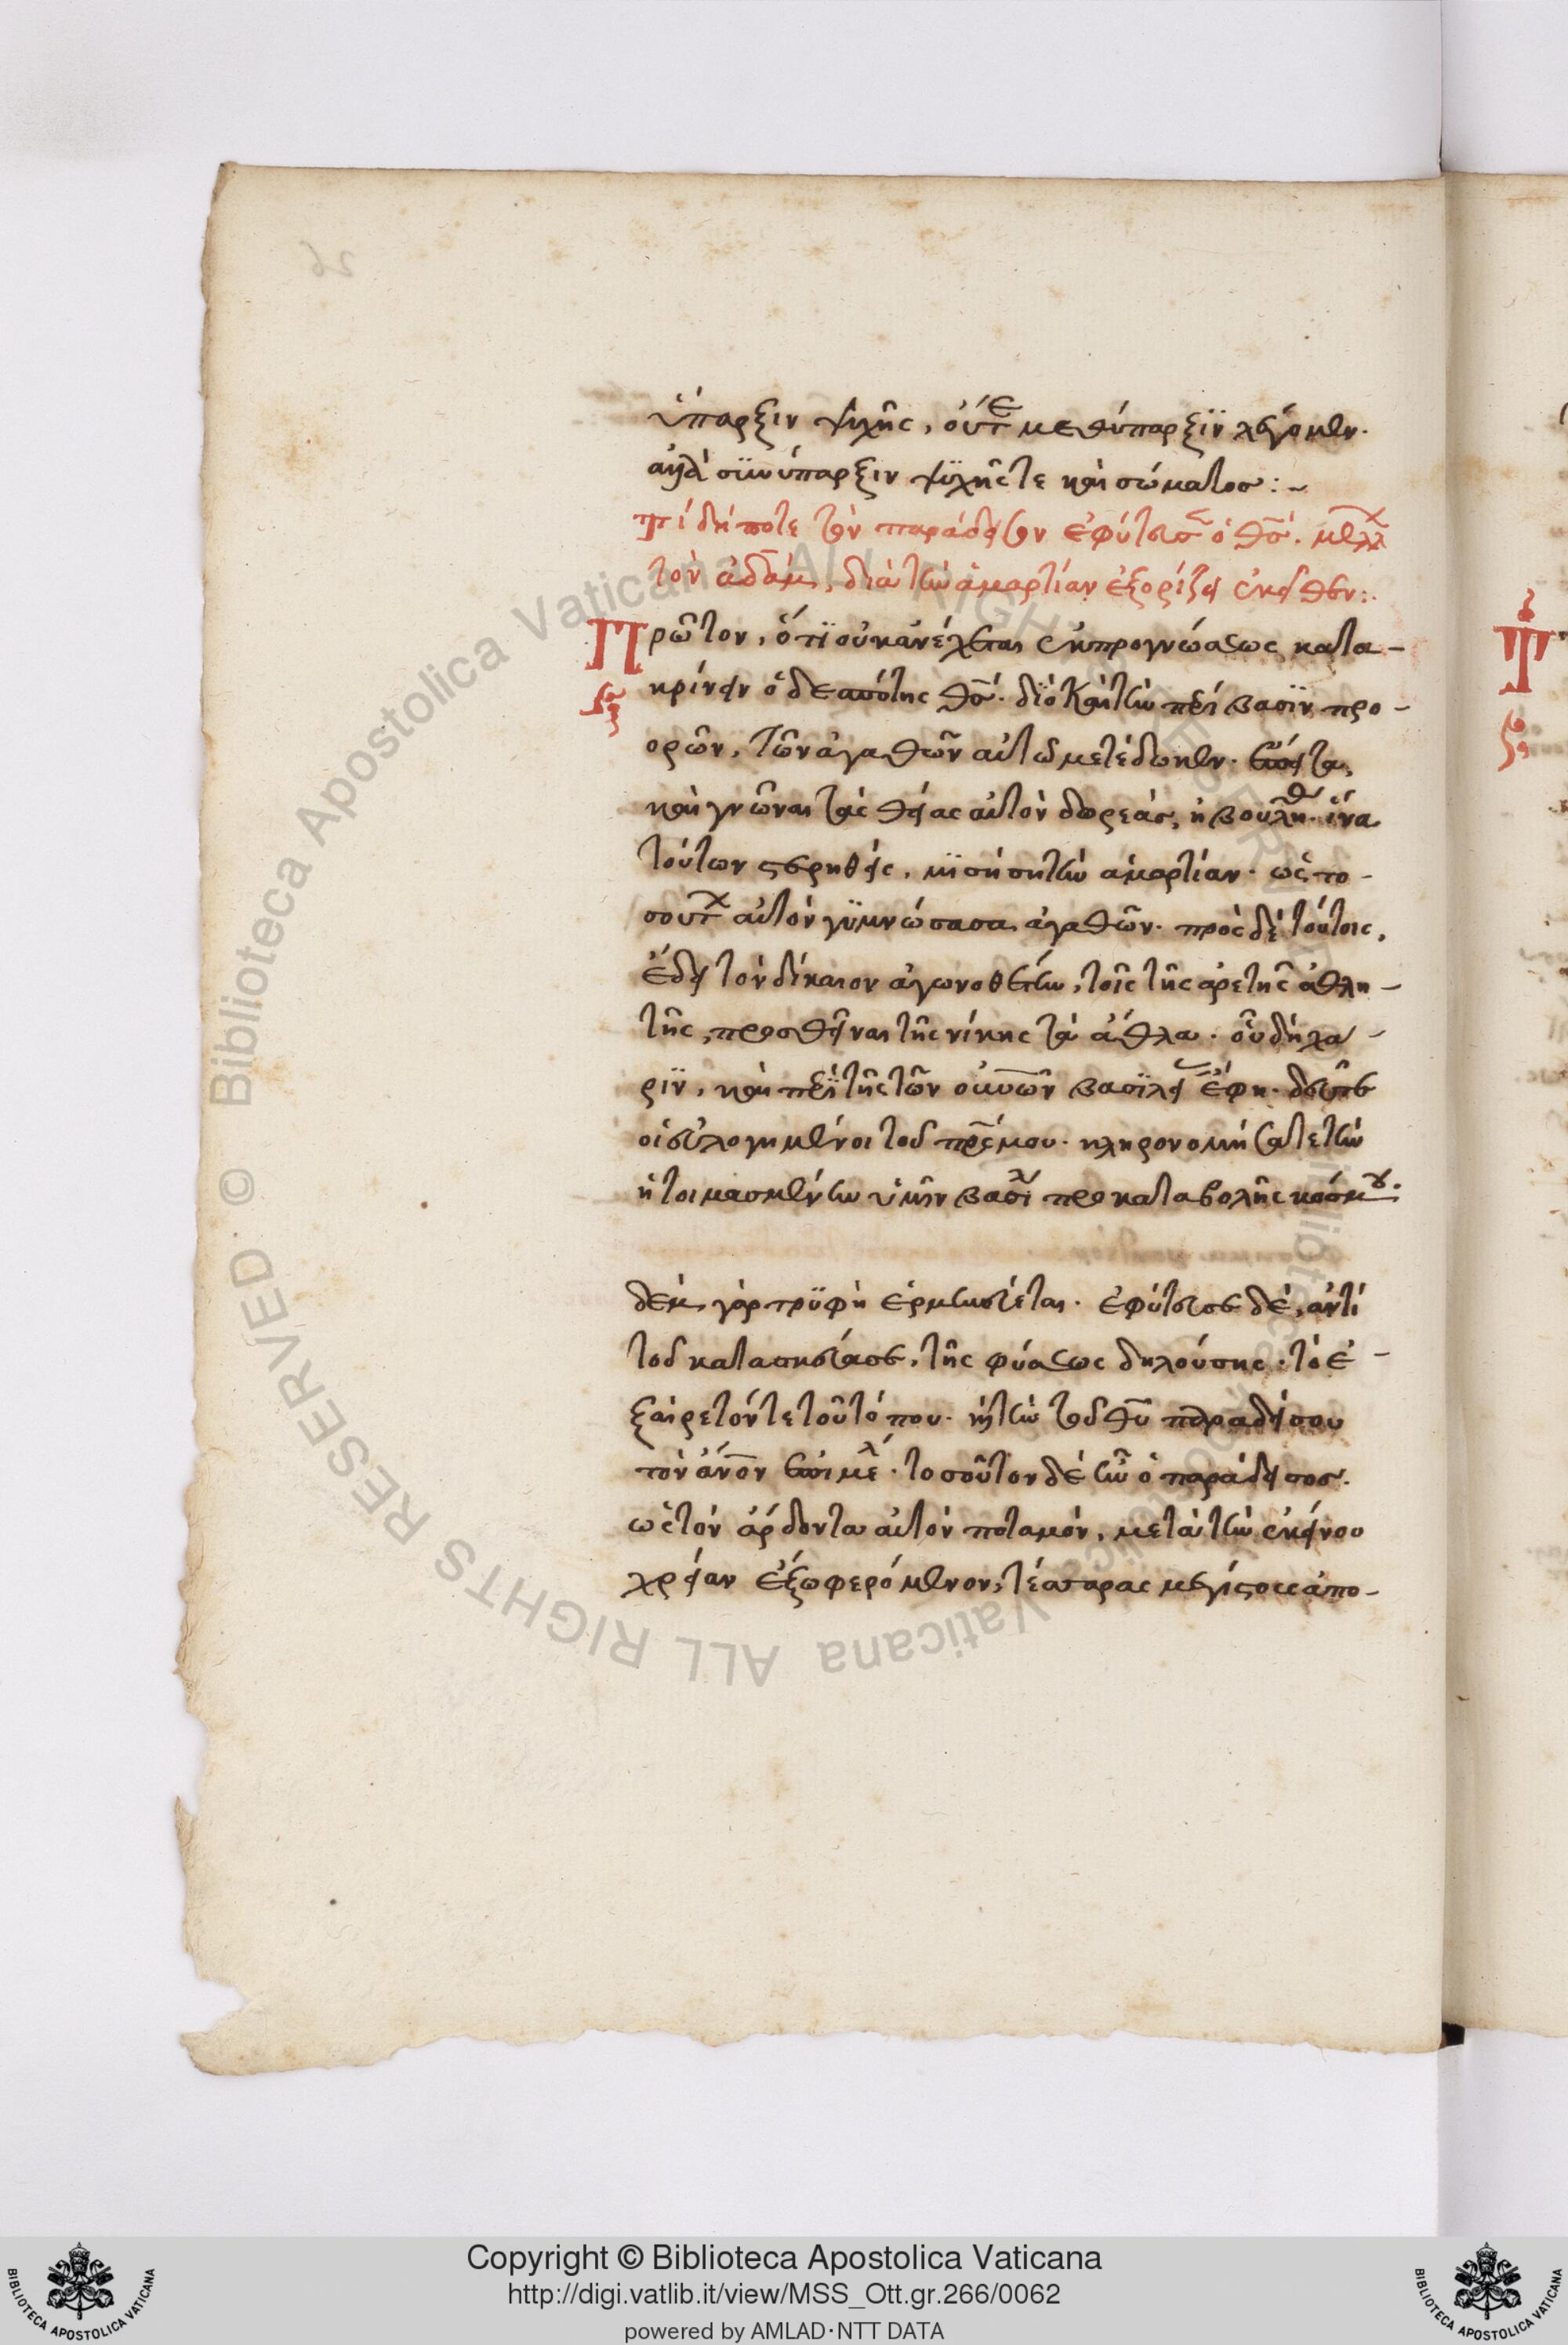 ὕπαρξιν ψυχῆς, οὔτε μεθύπαρξϊν λέγομεν·
ἀλλὰ σϋνύπαρξιν ψϋχῆς τε καὶ σώματοσ:~
τί δήποτε τὸν παράδεισον ἐφύτευσεν ὁ θσ· μέλλων
τὸν ἀδὰμ, διὰ τὴν ἁμαρτίαν ἐξορίζειν ἐκεῖθεν:
Πρῶτον, ὅτϊ οὐκ ἀνέχεται ἐκ προγνώσεως κατα-
κρίνειν ὁ δεσπότης θσ· δϊὸ καὶ τὴν παράβασϊν προ-
ορῶν, τῶν ἀγαθῶν αὐτῶ μετέδωκεν· ἔπειτα,
καὶ γνῶναι τὰς θείας αὐτὸν δωρεάσ, ἠβουλήθη· ἵνα
τούτων στερηθεὶς, μϊσήση τὴν ἁμαρτίαν· ὡς το-
σούτων αὐτὸν γϋμνώσασα ἀγαθῶν· πρὸς δὲ τούτοις,
ἔδει τὸν δίκαιον ἀγωνοθέτην, τοῖς τῆς ἀρετῆς ἀθλη-
τῆς, προσθεῖναι τῆς νίκης τὰ ἄθλα· οὗ δὴ χά-
ρϊν, καὶ περὶ τῆς τῶν οὐνῶν βασϊλείας ἔφη· δεῦτε
οἱ εὐλογημένοι τοῦ πρσ μου· κληρονομήσατε τὴν
ἡτοιμασμένην ὑμῖν βασι προ καταβολῆς κόσμου·
δὲμ γὰρ τρϋφὴ ἑρμηνεύεται· ἐφύτευσε δὲ, ἀντὶ
τοῦ κατασκεύασε, τῆς φύσεως δηλούσης· τὸ ἐ-
ξαίρετόν τε τοῦ τόπου· καὶ τὴν τοῦ θυ παραδείσου
τὸν ἄνον ἐπιμέλ· τοσοῦτον δὲ ἦν ὁ παράδεισοσ·
ὡς τὸν ἄρδοντα αὐτὸν ποταμὸν, μετὰ τὴν ἐκείνου
χρείαν ἔξω φερόμενον, τέσσαρας μεγίστους ἀπο-
Copyright © Biblioteca Apostolica Vaticana
http://digi.vatlib.it/view/MSS_Ott.gr.266/0062
powered by AMLAD·NTT DATA